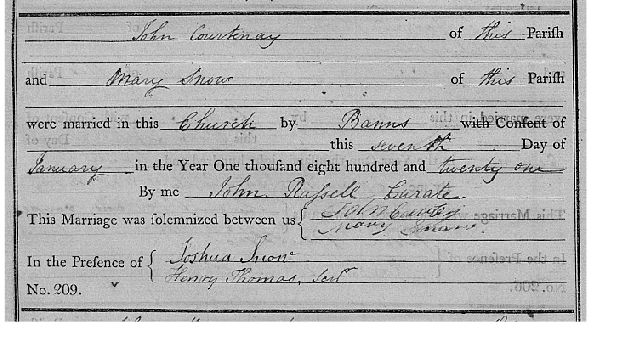 John Courtenay of this Parish
and Mary Snow of this Parish
were married in this Church by Banns with Consent of
this seventh Day of
January in the Year One thousand eight hundred and twenty one
By me John Russell Curate
This Marriage was solemnized between us
Mary Snow
In the Presence of Joshua Snow
Henry Thomas, Senr
No. 209.